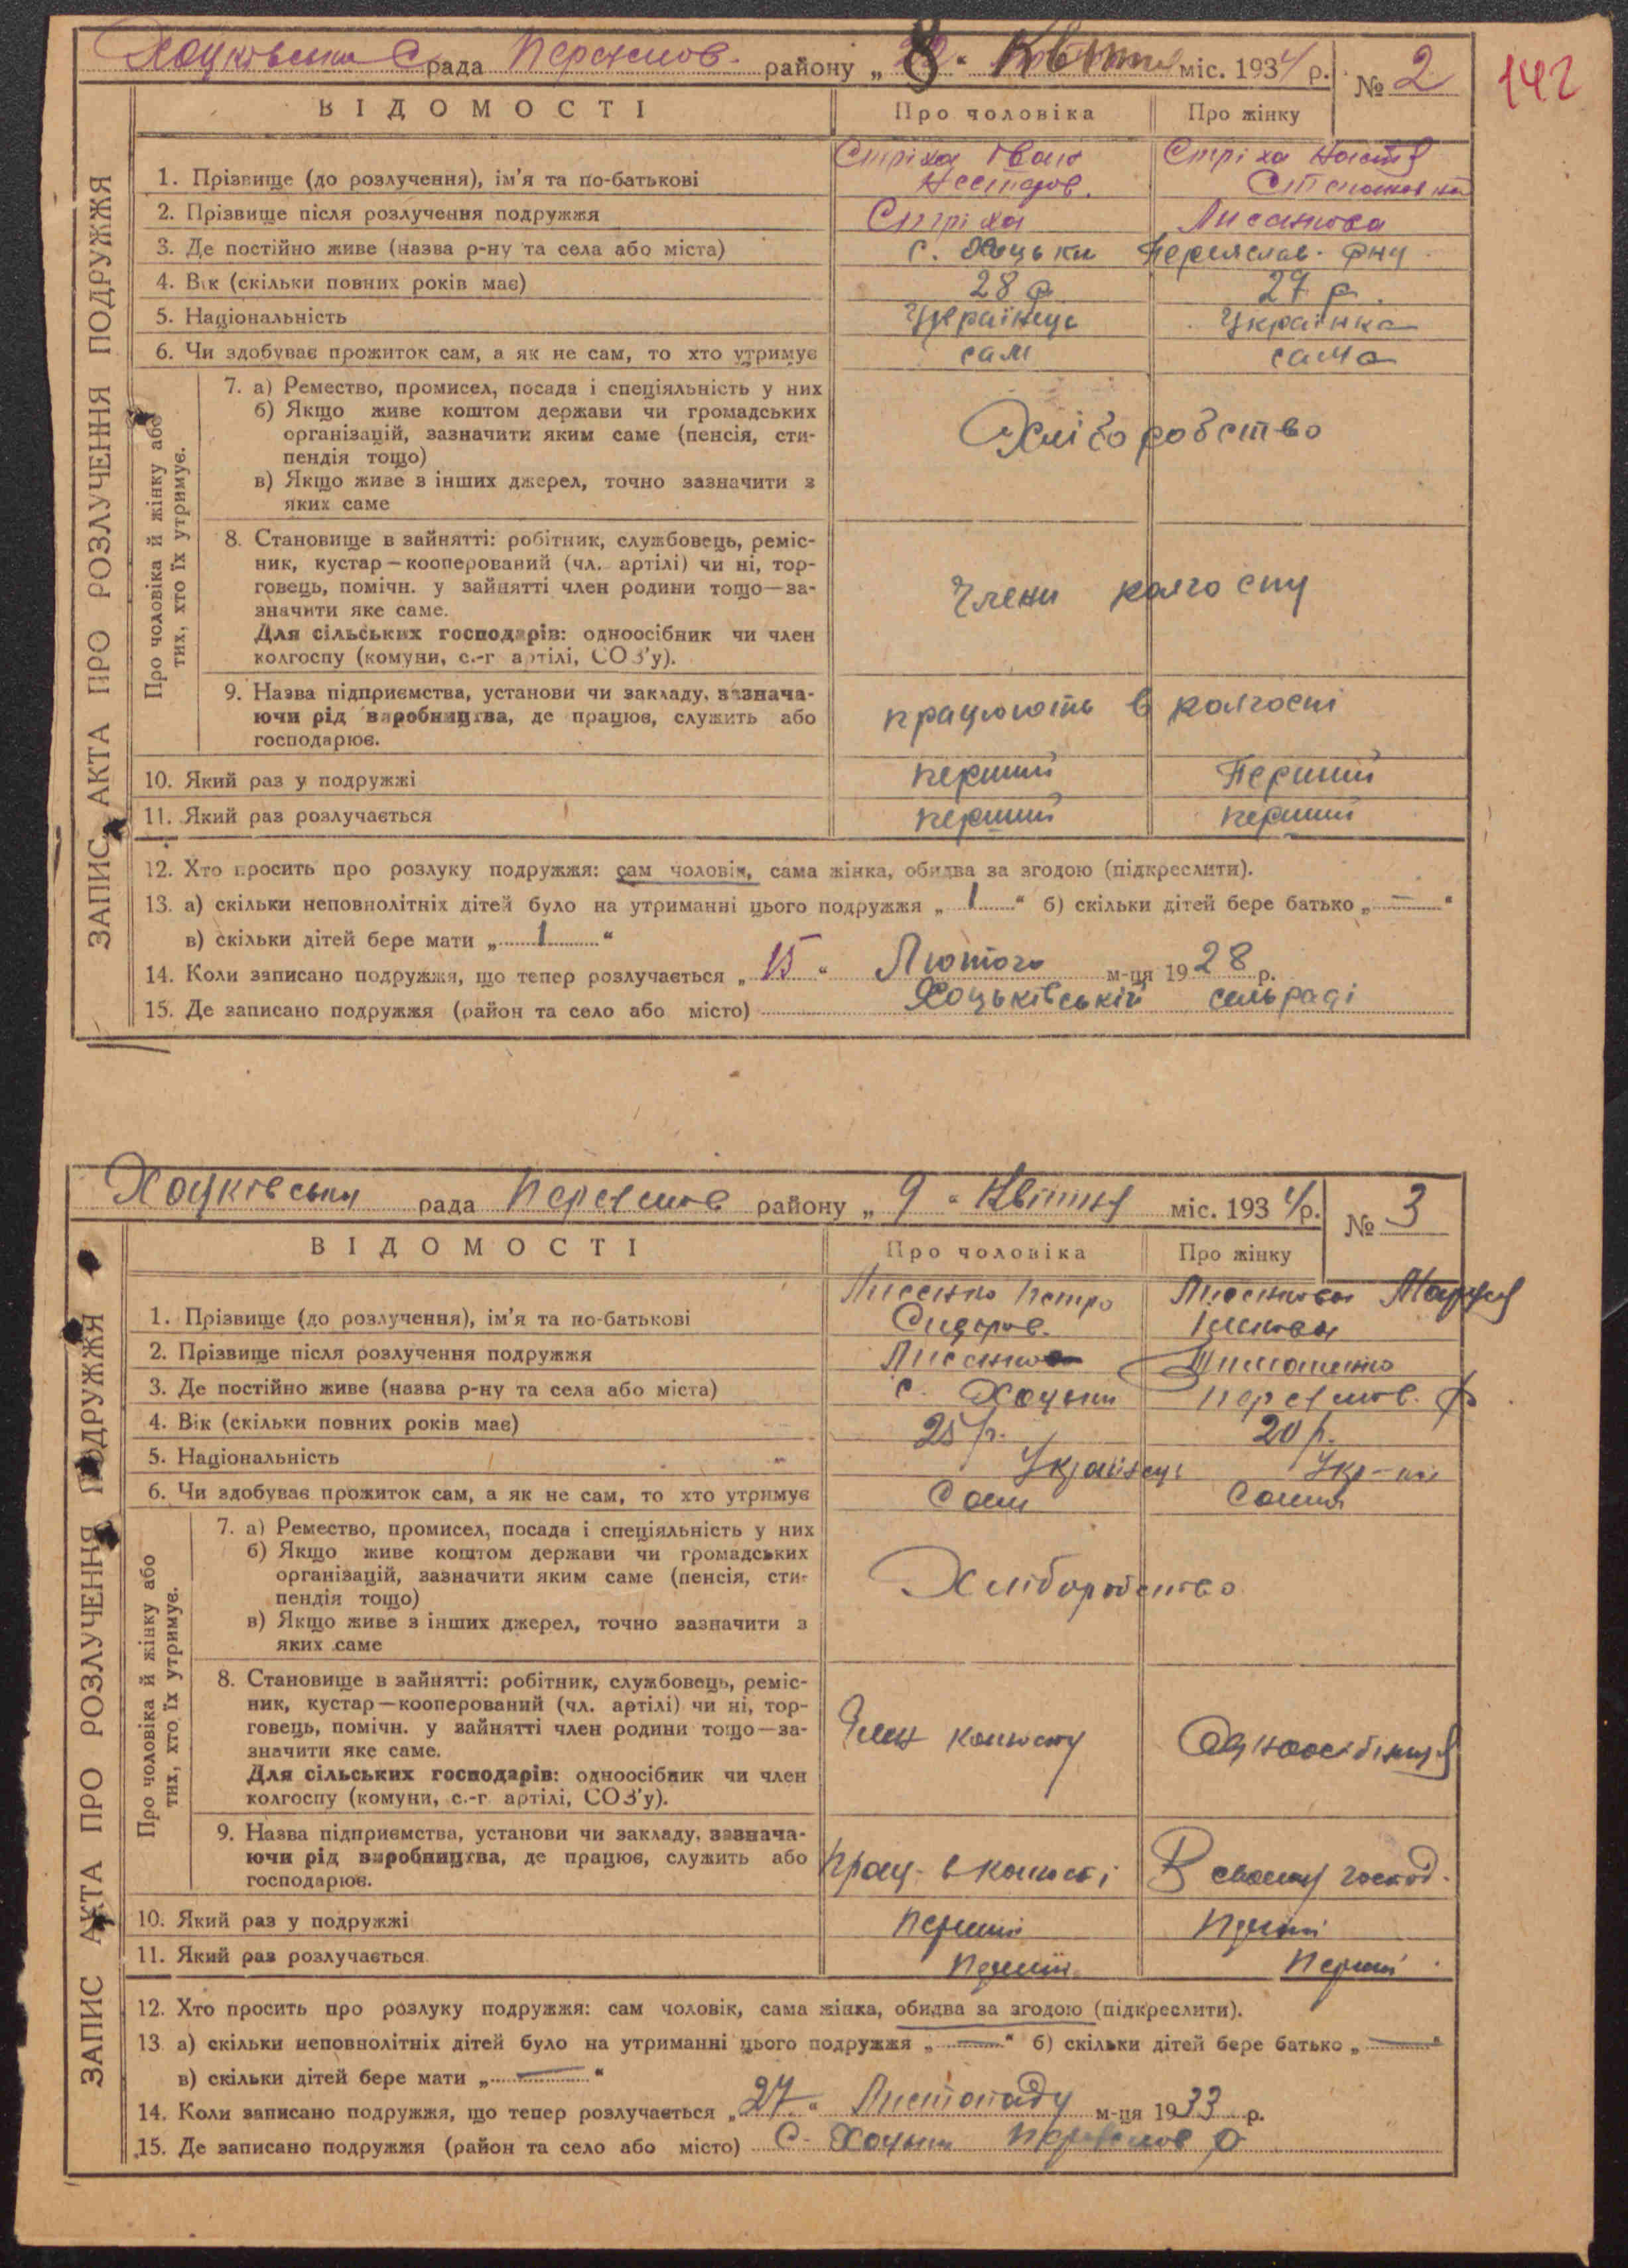 142
Хоцківська с рада Переяслов. району „ 8 “ Квітня міс. 1934 р. № 2
ЗАПИС АКТА ПРО РОЗЛУЧЕННЯ ПОДРУЖЖЯ
ВІДОМОСТІ Про чоловіка Про жінку
1. Прізвище (до розлучення), ім’я та по-батькові Стріха Іван Нестеров. Стріха Настя
2. Прізвище після розлучення подружжя Стріха Лисанова
3. Де постійно живе (назва р-ну та села або міста) с. Хоцьки Переяслав. р-ну
4. Вік (скільки повних років має) 28 р. 27 р.
5. Національність Українець Українка
6. Чи здобуває прожиток сам, а як не сам, то хто утримує сам сама
Про чоловіка й жінку або
тих, хто їх утримує.
7. а) Ремество, промисел, посада і спеціяльність у них
б) Якщо живе коштом держави чи громадських
організацій, зазначити яким саме (пенсія, сти-
пендія тощо)
в) Якщо живе з інших джерел, точно зазначити з
яких саме
Хліборобство
8. Становище в зайнятті: робітник, службовець, реміс-
ник, кустар—кооперований (чл. артілі) чи ні, тор-
говець, помічн. у зайнятті член родини тощо—за-
значити яке саме.
Для сільських господарів: одноосібник чи член
колгоспу (комуни, с.-г артілі, СОЗ’у).
Члени колгоспу
9. Назва підприємства, установи чи закладу, зазнача-
ючи рід виробництва, де працює, служить або
господарює.
працюють в колгоспі
10. Який раз у подружжі перший Перший
11. Який раз розлучається перший перший
12. Хто просить про розлуку подружжя: сам чоловік, сама жінка, обидва за згодою (підкреслити).
13. а) скільки неповнолітніх дітей було на утриманні цього подружжя „ 1 “ б) скільки дітей бере батько „ — “
в) скільки дітей бере мати „ 1 “
14. Коли записано подружжя, що тепер розлучається „ 15 “ Лютого м-ця 1928 р.
15. Де записано подружжя (район та село або місто) Хоцьківській сельраді
Хоцківська рада Переяслов району „ 9 “ Квітня міс. 1934 р. № 3
ЗАПИС АКТА ПРО РОЗЛУЧЕННЯ ПОДРУЖЖЯ
ВІДОМОСТІ Про чоловіка Про жінку
1. Прізвище (до розлучення), ім’я та по-батькові Лисенко Петро Сидоров. Маруся
2. Прізвище після розлучення подружжя Лисенко
3. Де постійно живе (назва р-ну та села або міста) с. Хоцьки Переяслов. р
4. Вік (скільки повних років має) 25 р. 20 р.
5. Національність Українець Укр-ка
6. Чи здобуває прожиток сам, а як не сам, то хто утримує Сам Сама
Про чоловіка й жінку або
тих, хто їх утримує.
7. а) Ремество, промисел, посада і спеціяльність у них
б) Якщо живе коштом держави чи громадських
організацій, зазначити яким саме (пенсія, сти-
пендія тощо)
в) Якщо живе з інших джерел, точно зазначити з
яких саме
Хліборобство
8. Становище в зайнятті: робітник, службовець, реміс-
ник, кустар—кооперований (чл. артілі) чи ні, тор-
говець, помічн. у зайнятті член родини тощо—за-
значити яке саме.
Для сільських господарів: одноосібник чи член
колгоспу (комуни, с.-г артілі, СОЗ’у).
Член колгоспу Одноосібниця
9. Назва підприємства, установи чи закладу, зазнача-
ючи рід виробництва, де працює, служить або
господарює.
Прац- в колгоспі В своєму господ.
10. Який раз у подружжі Перший Перший
11. Який раз розлучається Перший Перший
12. Хто просить про розлуку подружжя: сам чоловік, сама жінка, обидва за згодою (підкреслити).
13 а) скільки неповнолітніх дітей було на утриманні цього подружжя „ — “ б) скільки дітей бере батько „ — “
в) скільки дітей бере мати „ — “
14. Коли записано подружжя, що тепер розлучається „ 27 “ Листопаду м-ця 1933 р.
15. Де записано подружжя (район та село або місто) с. Хоцьки Переяслов р